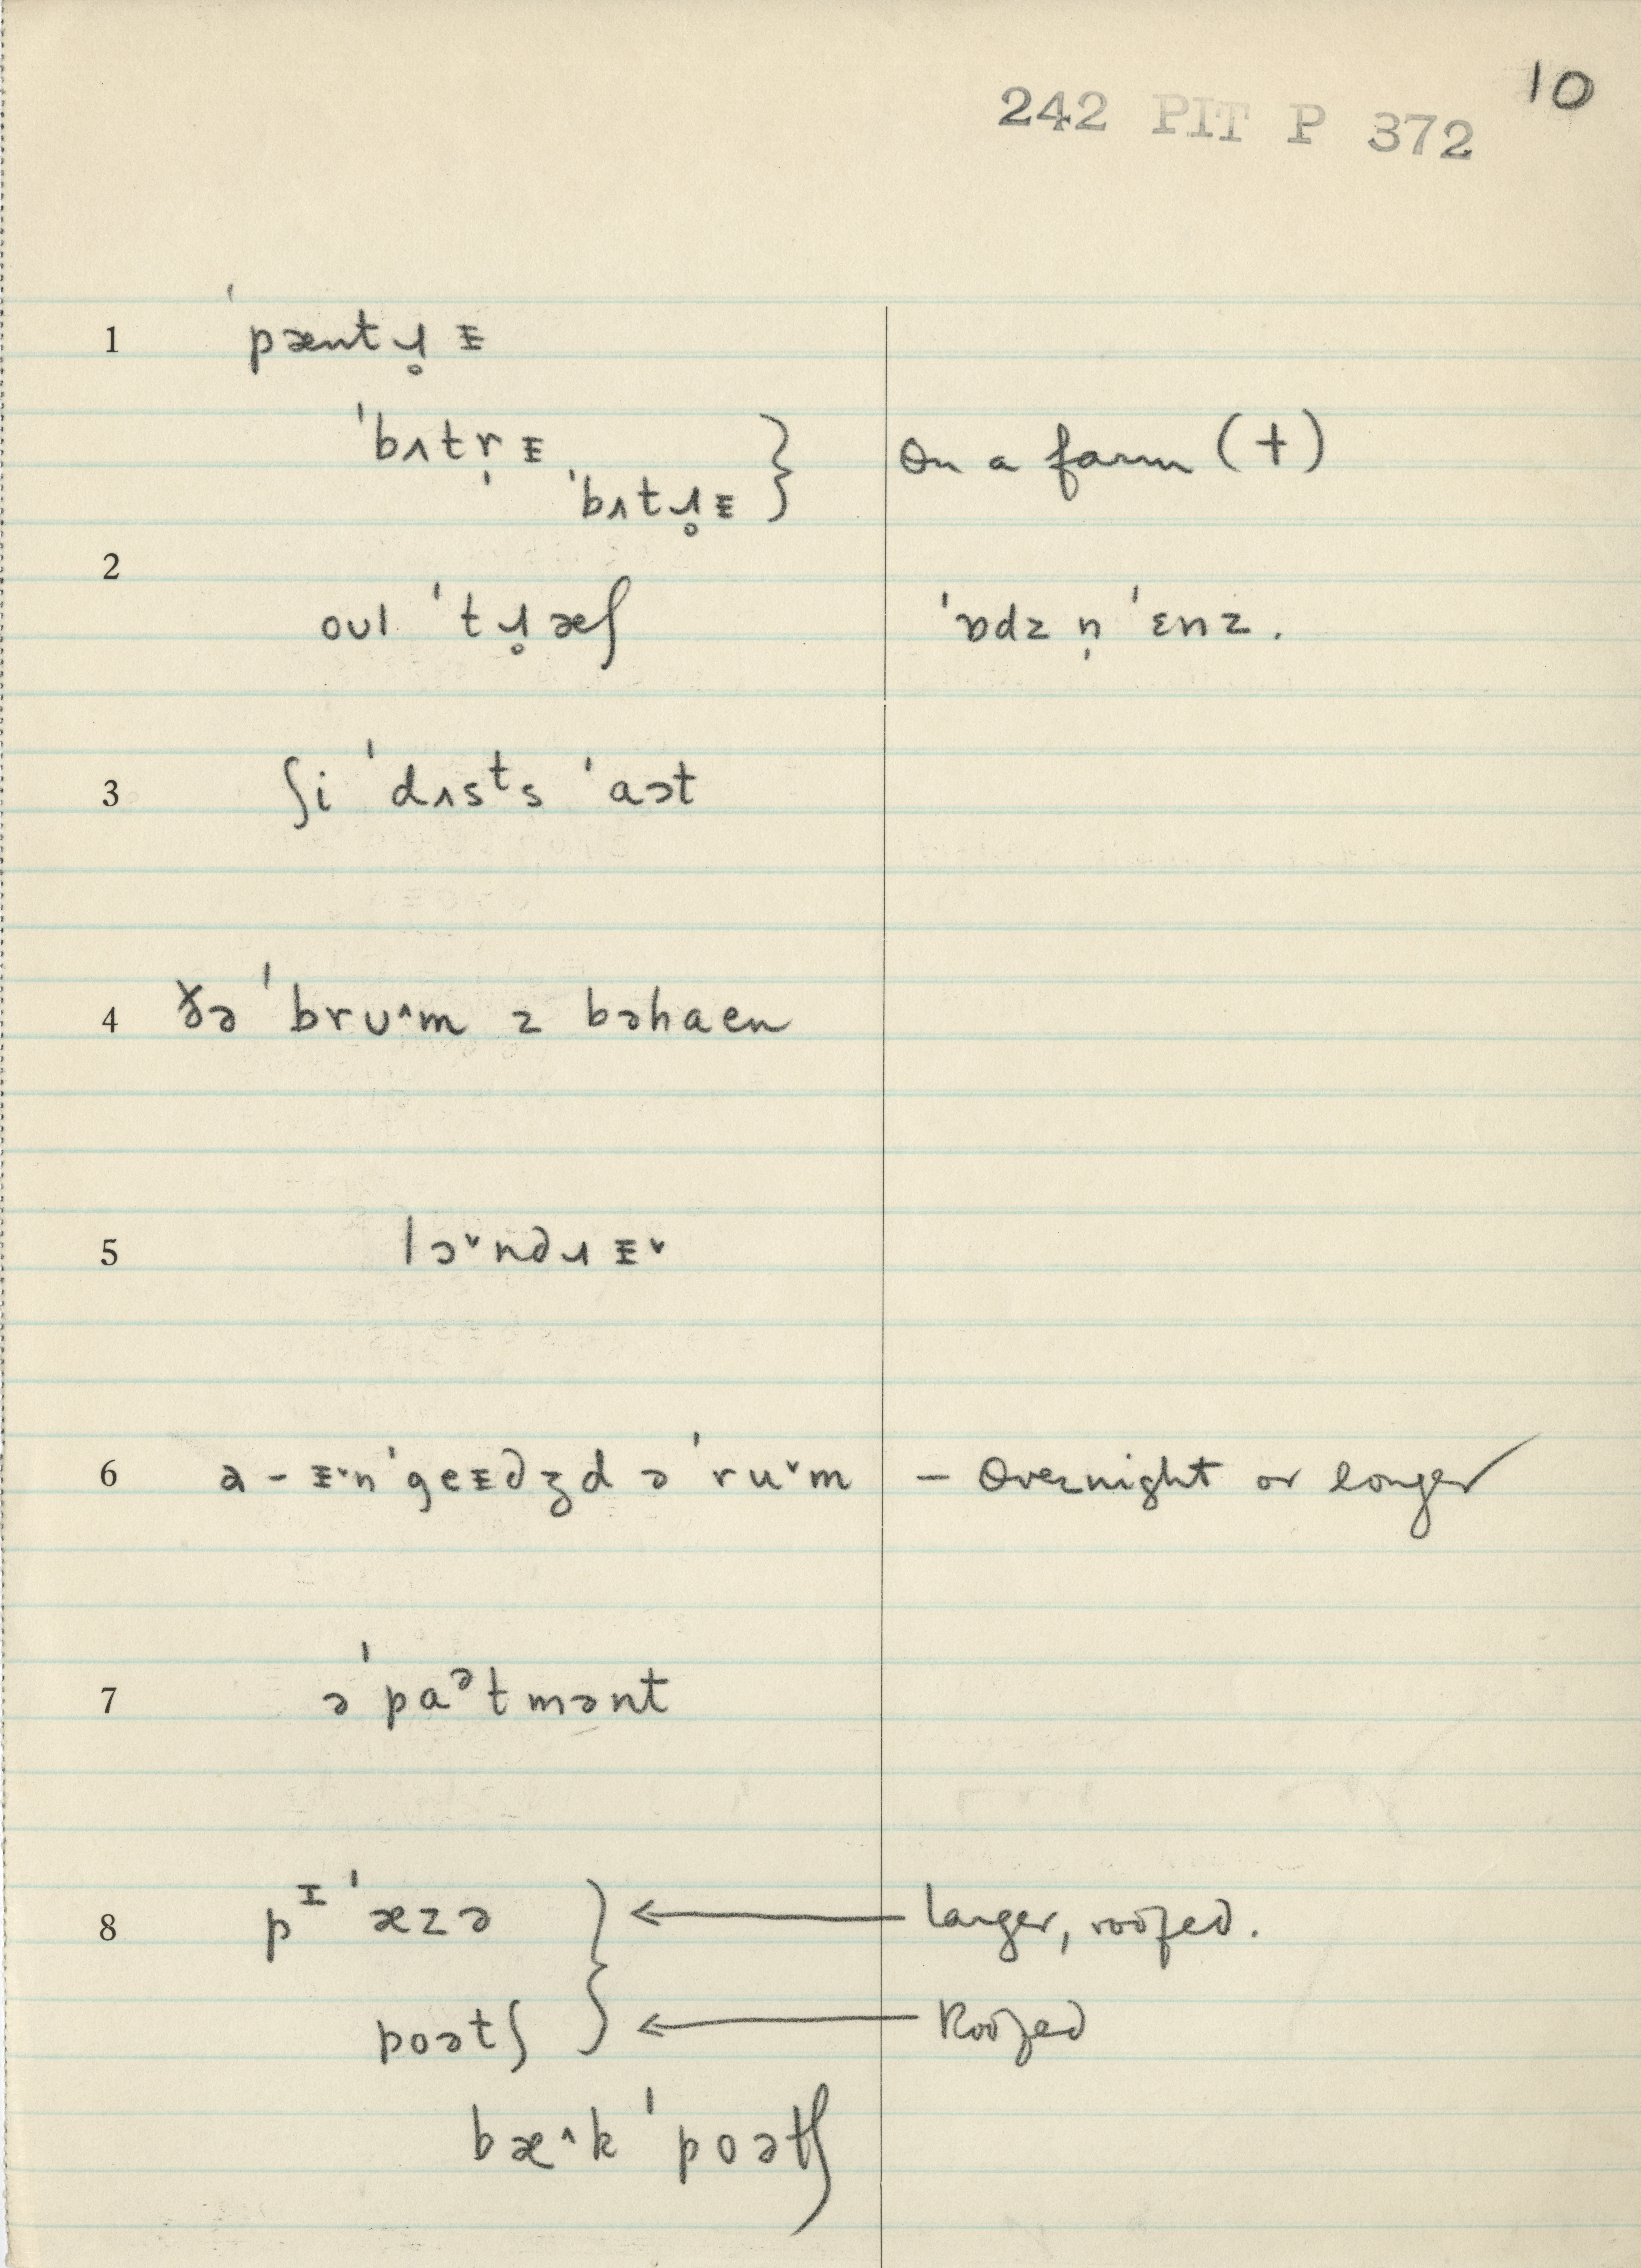 10
242 PIT P 372
1 ˈpæntɹ̥ᵻ
ˈbʌtr̩ᵻ
ˈbʌtɹ̥ᵻ } On a farm (+)
2
oul ˈtɹ̥æʃ ˈɒdz n̩ ˈɛnz.
3 ʃi ˈdʌsᵗs ˈaət
4 ðə ˈbrᴜ˄m z bəhaen
5 lɔ˅ndɹᵻ˅
6 a - ᵻ˅nˈgeᵻdʒd ə ˈru˅m – Overnight or longer
7 əˈpaᵊtmənt
8 pᶦˈæzə } ← Larger, roofed.
poətʃ ← Roofed
bæ˄k ˈpoətʃ